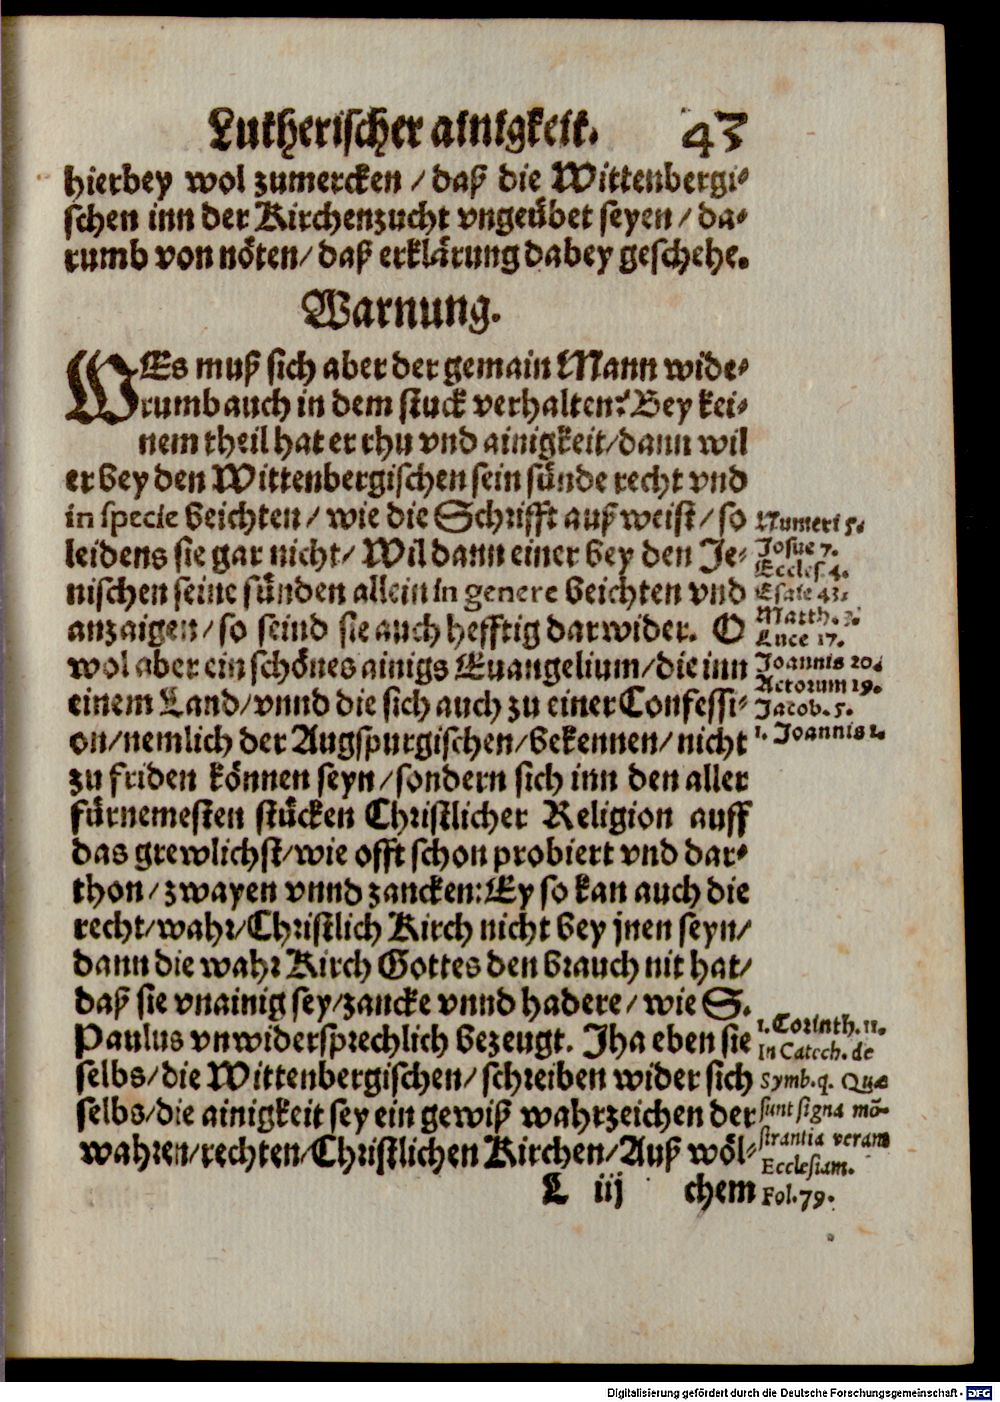 Lutherischer ainigkeit. 43
hierbey wol zumercken / daß die Wittenbergi-
schen inn der Kirchenzucht vngeübet seyen / da-
rumb von nöten / daß erklärung dabey geschehe.
Warnung.
WEs muß sich aber der gemain Mann wide-
rumb auch in dem stuck verhalten? Bey kei-
nem theil hat er rhu vnd ainigkeit / dann wil
er bey den Wittenbergischen sein sünde recht vnd
in specie beichten / wie die Schrifft außweist / so
leidens sie gar nicht / Wil dann einer bey den Je-
nischen seine sünden allein in genere beichten vnd
anzaigen / so seind sie auch hefftig darwider. O
wol aber ein schönes ainigs Euangelium / die inn
einem Land / vnnd die sich auch zu einer Confessi-
on / nemlich der Augspurgischen / bekennen / nicht
zu friden können seyn / sondern sich inn den aller
fürnemesten stücken Christlicher Religion auff
das grewlichst / wie offt schon probiert vnd dar-
thon / zwayen vnnd zancken: Ey so kan auch die
recht / wahr / Christlich Kirch nicht bey jnen seyn /
dann die wahr Kirch Gottes den brauch nit hat /
daß sie vnainig sey / zancke vnnd hadere / wie S.
Paulus vnwidersprechlich bezeugt. Jha eben sie
selbs / die Wittenbergischen / schreiben wider sich
selbs / die ainigkeit sey ein gewiß wahrzeichen der
wahren / rechten / Christlichen Kirchen / Auß wöl-
L iij chem
Numeri 5.
Josue 7.
Eccles. 4.
Esaie 43.
Matth. 3.
Luce 17.
Joannis 20.
Actorum 19.
Jacob. 5.
1. Joannis 1.
1. Corinth. 11.
In Catech. de
Symb. q. Quæ
sunt signa mõ-
strantia veram
Ecclesiam.
Fol. 79.
Digitalisierung gefördert durch die Deutsche Forschungsgemeinschaft - DFG